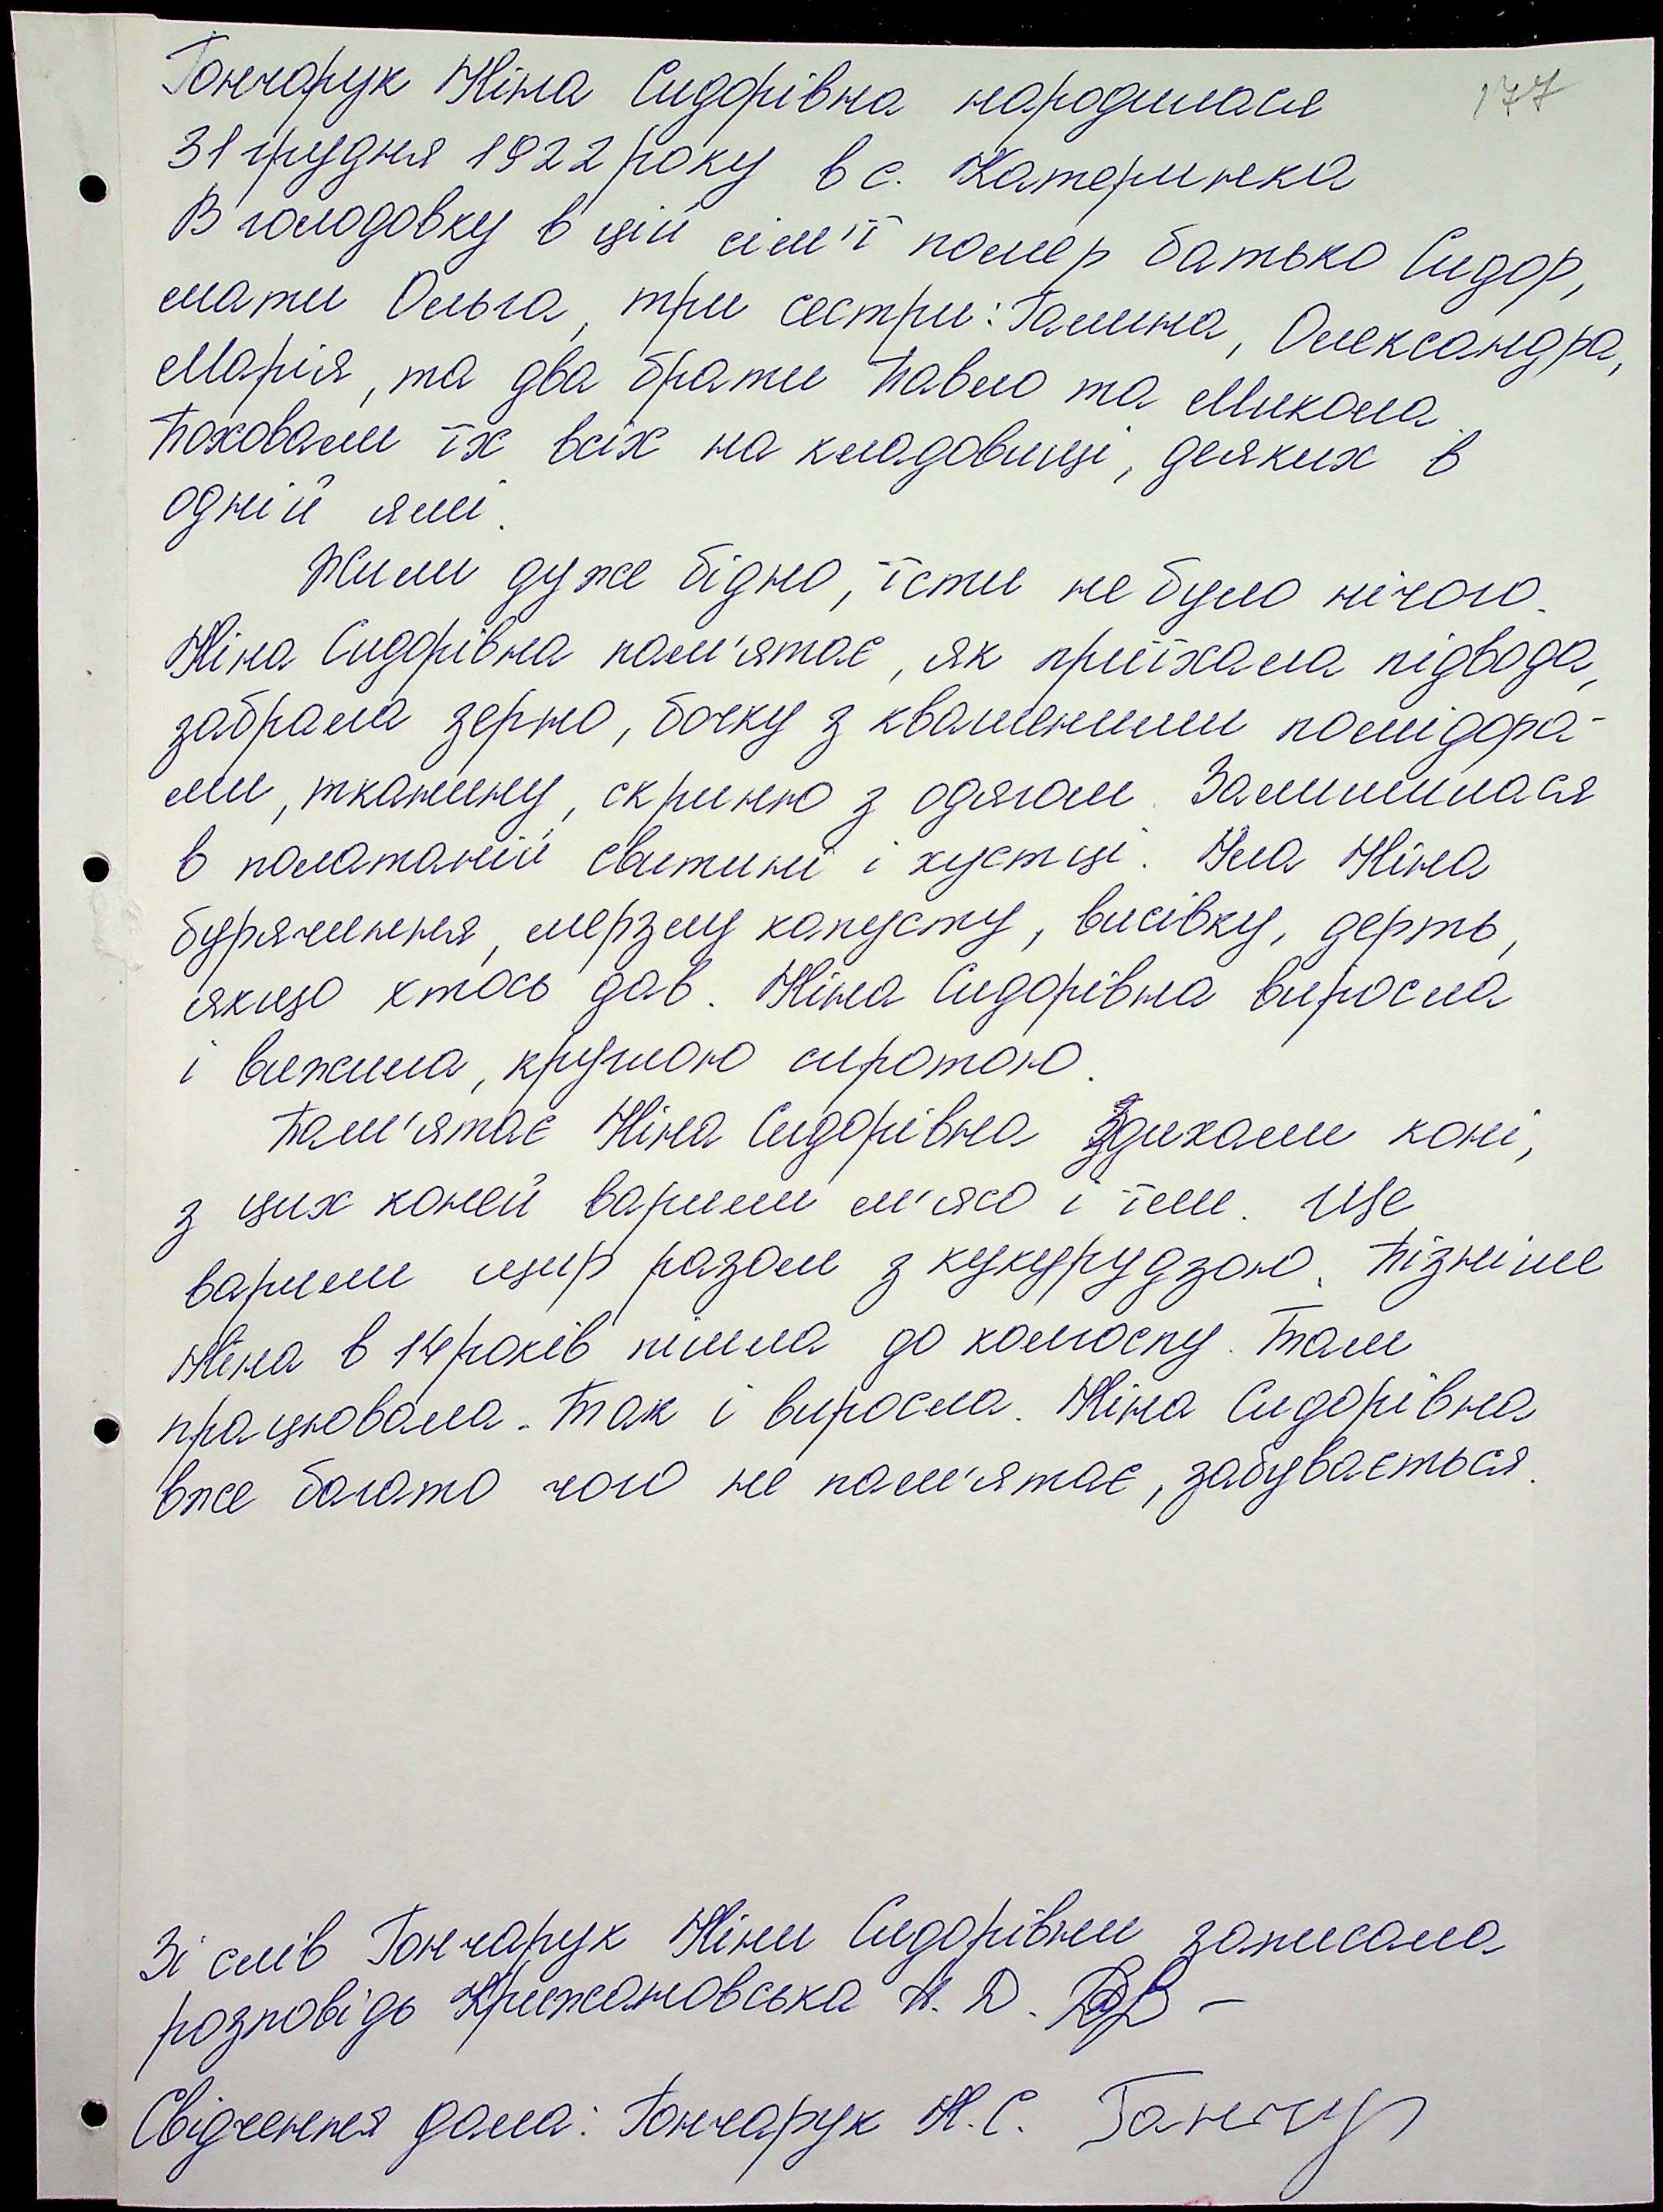 177
Гончарук Ніна Сидорівна народилася
31 грудня 1922 року в с. Катеринка
В голодовку в цій сім'ї помер батько Сидор,
мати Ольга, три сестри: Галина, Олександра,
Марія, та два брати Павло та Микола.
Поховали їх всіх на кладовищі, деяких в
одній ямі.
Жили дуже бідно, їсти не було нічого.
Ніна Сидорівна пам'ятає, як приїхала підвода,
забрала зерно, бочку з квашеними помідора-
ми, тканину, скриню з одягом. Залишилася
в полатаній свитині і хустці. Їла Ніна
бурячиння, мерзлу капусту, висівку, дерть,
якщо хтось дав. Ніна Сидорівна виросла
і вижила, круглою сиротою.
Пам'ятає Ніна Сидорівна здихали коні,
з цих коней варили м'ясо і їли. Ще
варили щир разом з кукурудзою. Пізніше
Ніна в 14 років пішла до колгоспу. Там
працювала. Так і виросла. Ніна Сидорівна
вже багато чого не пам'ятає, забувається.
Зі слів Гончарук Ніни Сидорівни записала
розповідь Крижановська Н. Д.
Свідчення дала: Гончарук Н. С. Гончур